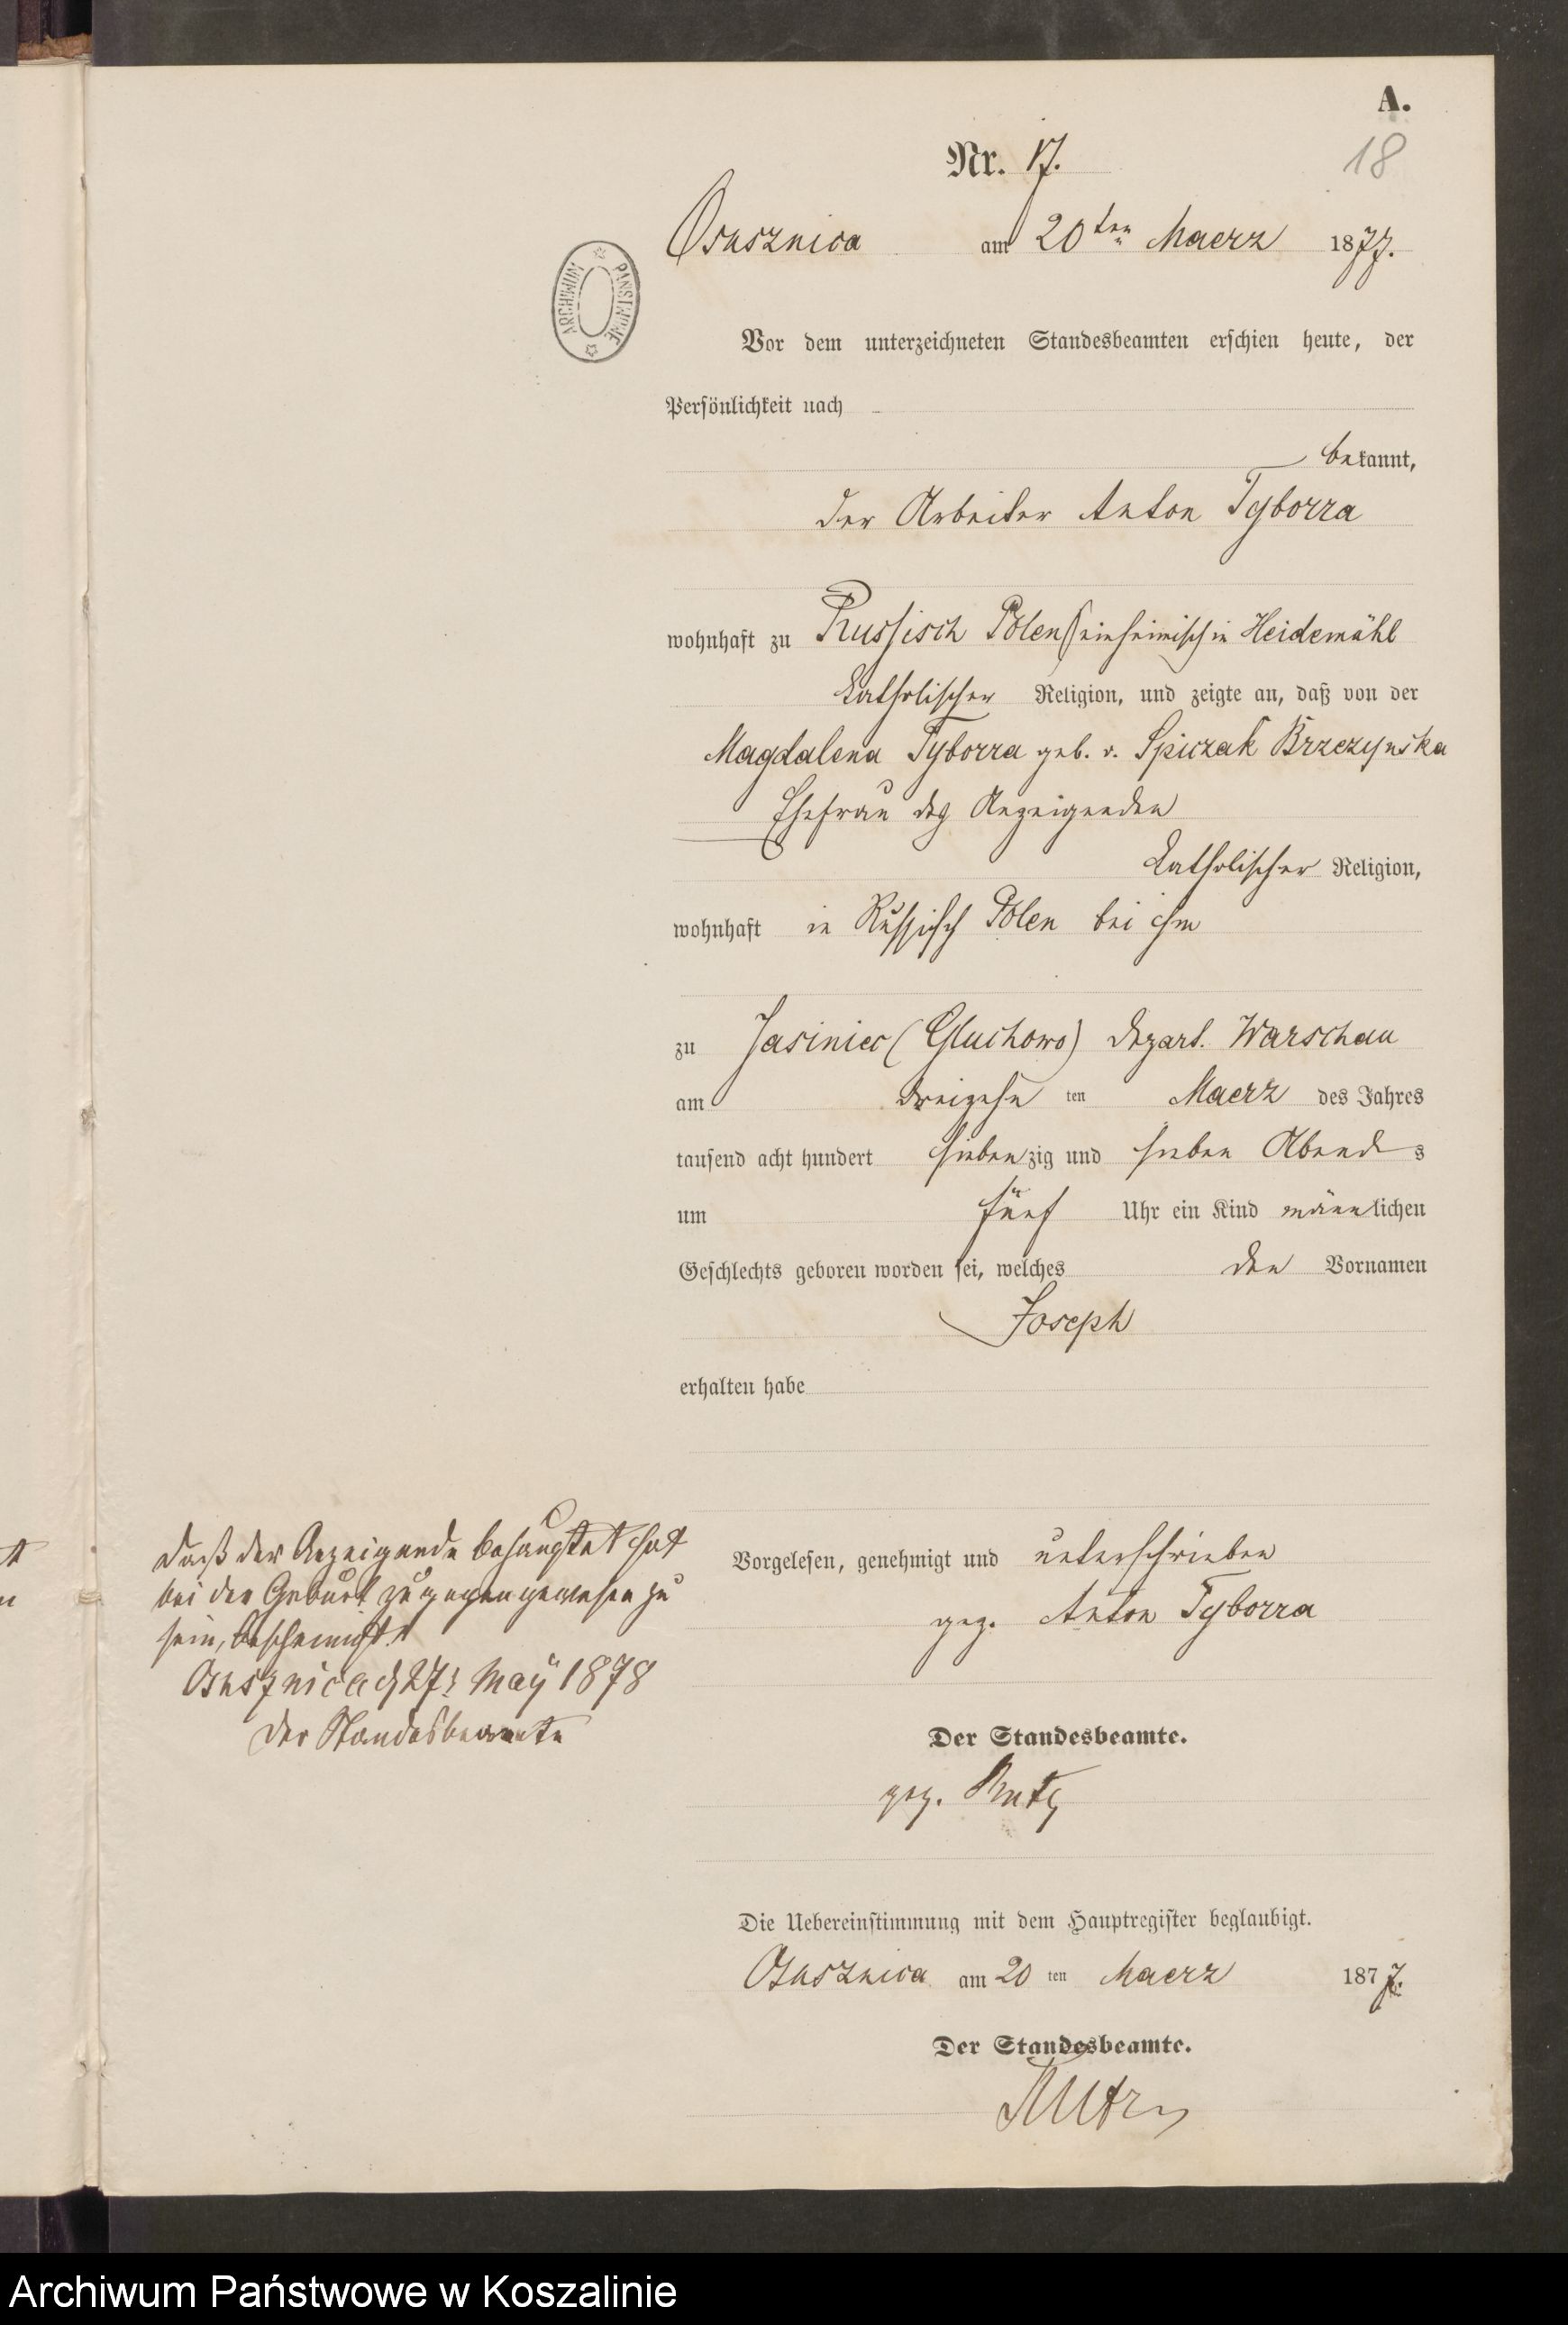 A.
Nr. 17.
18
Osusznica am 20ten Maerz 1877.
ARCHIWUM PAŃSTWOWE
Vor dem unterzeichneten Standesbeamten erschien heute, der
Persönlichkeit nach
bekannt,
der Arbeiter Anton Tyborra
wohnhaft zu Russisch Polen einheimisch in Heidemühl
katholischer Religion, und zeigte an, daß von der
Magdalena Tyborra geb. v. Spiczak Brzezynska
Ehefrau des Anzeigenden
katholischer Religion,
wohnhaft in Russisch Polen bei ihm
zu Jasiniec (Gluchowo) Depart. Warschau
am dreizehn ten Maerz des Jahres
tausend acht hundert siebenzig und sieben Abends
um fünf Uhr ein Kind männlichen
Geschlechts geboren worden sei, welches den Vornamen
Joseph
erhalten habe
Vorgelesen, genehmigt und unterschrieben
gez. Anton Tyborra
daß der Anzeigende behauptet hat
bei der Geburt zugegen gewesen zu
sein, bescheinigt.
Osusznica d 27t May 1878
Der Standesbeamte
Der Standesbeamte.
gez. Rutz
Die Uebereinstimmung mit dem Hauptregister beglaubigt.
Osusznica am 20 ten Maerz 1877.
Der Standesbeamte.
Rutz
Archiwum Państwowe w Koszalinie